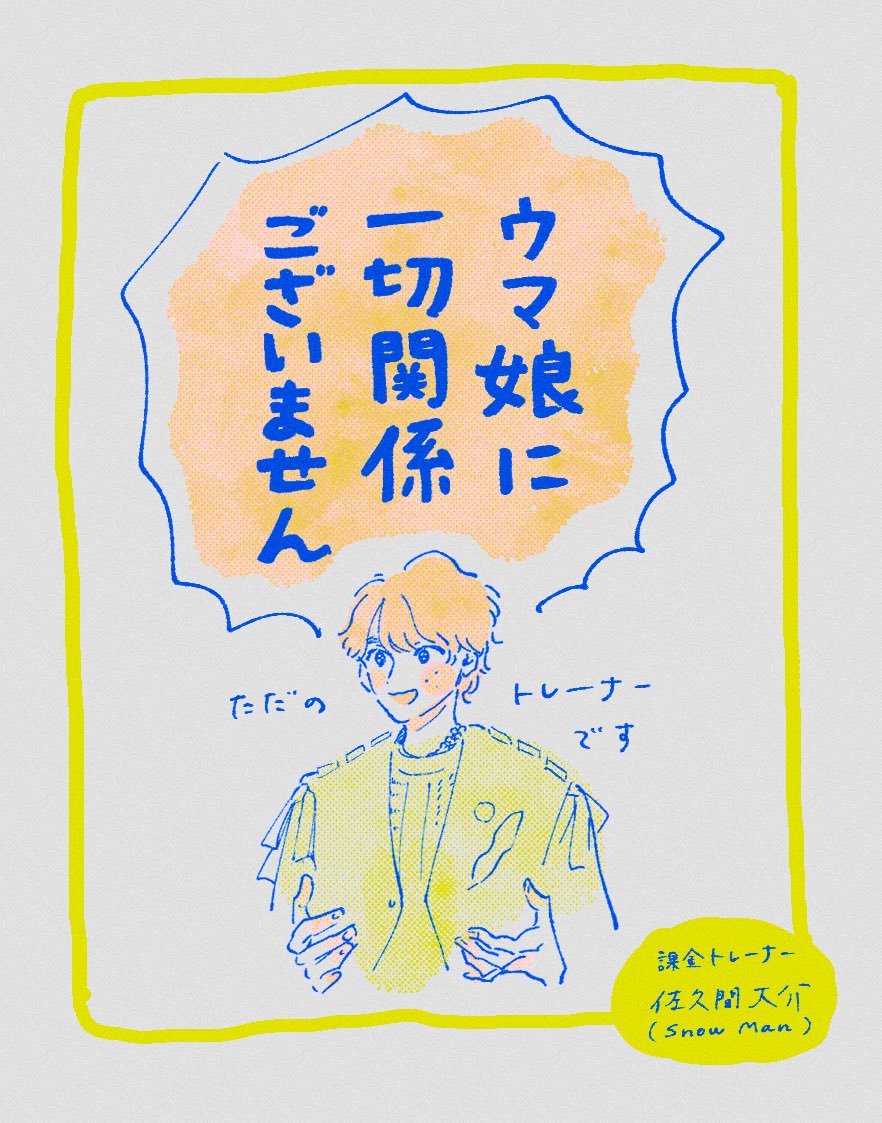 ウマ娘に
一切関係
ございません
ただの
トレーナー
です
課金トレーナー
佐久間大介
(Snow Man)